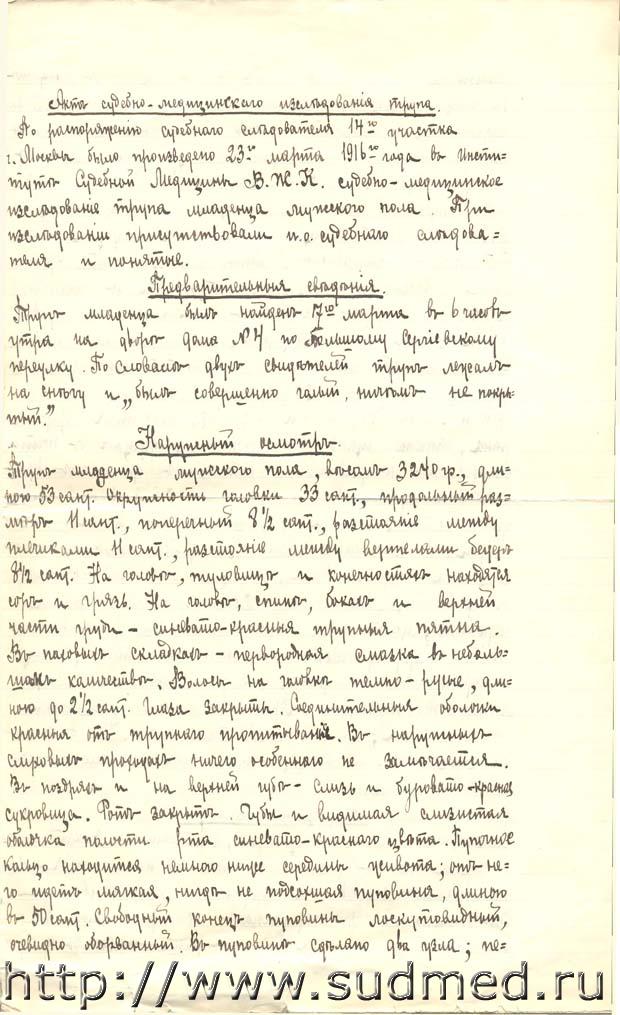 Актъ судебно-медицинскаго изслѣдованія трупа.
По распоряженію судебнаго слѣдователя 14го участка
г. Москвы было произведено 23го марта 1916го года въ Инсти=
тутѣ Судебной Медицины В.Ж.К. судебно-медицинское
изслѣдованіе трупа младенца мужского пола. При
изслѣдованіи присутствовали и.о. судебнаго слѣдова=
теля и понятые.
Предварительныя свѣдѣнія.
Трупъ младенца былъ найденъ 7го марта въ 6 часовъ
утра на дворѣ дома №4 по Большому Сергіевскому
переулку. По словамъ двухъ свидѣтелей трупъ лежалъ
на снѣгу и „былъ совершенно голый, ничѣмъ не покры=
тый."
Наружный осмотръ.
Трупъ младенца мужского пола, вѣсомъ 3240 гр., дли=
ною 53 сант. Окружности головки 33 сант., продольный раз=
мѣръ 11 сант., поперечный 8 1/2 сант., разстояніе между
плечиками 11 сант., разстояніе между вертелами бедеръ
8 1/2 сант. На головѣ, туловищѣ и конечностяхъ находятся
соръ и грязь. На головѣ, спинѣ, бокахъ и верхней
части груди – синевато-красныя трупныя пятна.
Въ паховыхъ складкахъ – первородная смазка въ неболь=
шомъ количествѣ. Волосы на головкѣ темно-русые, дли=
ною до 2 1/2 сант. Глаза закрыты. Соединительныя оболочки
красныя отъ трупнаго пропитыванія. Въ наружныхъ
слуховыхъ проходахъ ничего особеннаго не замѣчается.
Въ ноздряхъ и на верхней губѣ – слизь и буровато-красная
сукровица. Ротъ закрытъ. Губы и видимая слизистая
оболочка полости рта синевато-краснаго цвѣта. Пупочное
кольцо находится немного ниже середины живота; отъ не=
го идетъ мягкая, нигдѣ не подсохшая пуповина, длиною
въ 50 сант. Свободный конецъ пуповины лоскутовидный,
очевидно оборванный. Въ пуповинѣ сдѣлано два узла; пе=
http://www.sudmed.ru